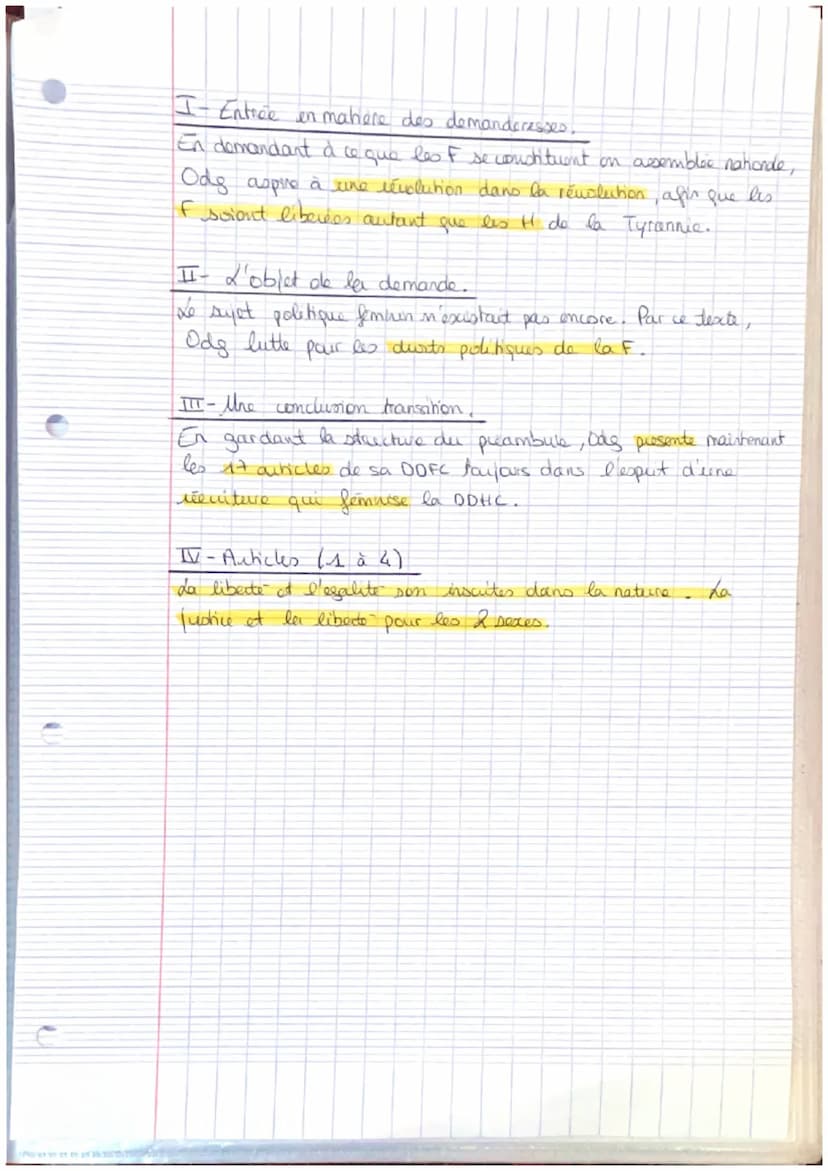 I- Entrée en matière des demanderesses.
En demandant à ce que les F se constituent en assemblée nationale,
Odg aspire à une révolution dans la révolution, afin que les
F soient libérées autant que les H de la Tyrannie.
II- L'objet de la demande.
Le sujet politique féminin n'existait pas encore. Par ce texte,
Odg lutte pour les droits politiques de la F.
III- Une conclusion transition.
En gardant la structure du préambule, Odg présente maintenant
les 17 articles de sa DDFC toujours dans l'esprit d'une
réécriture qui féminise la DDHC.
IV- Articles (1 à 4)
La liberté et l'égalité son inscrites dans la nature. La
justice et la liberté pour les 2 sexes.